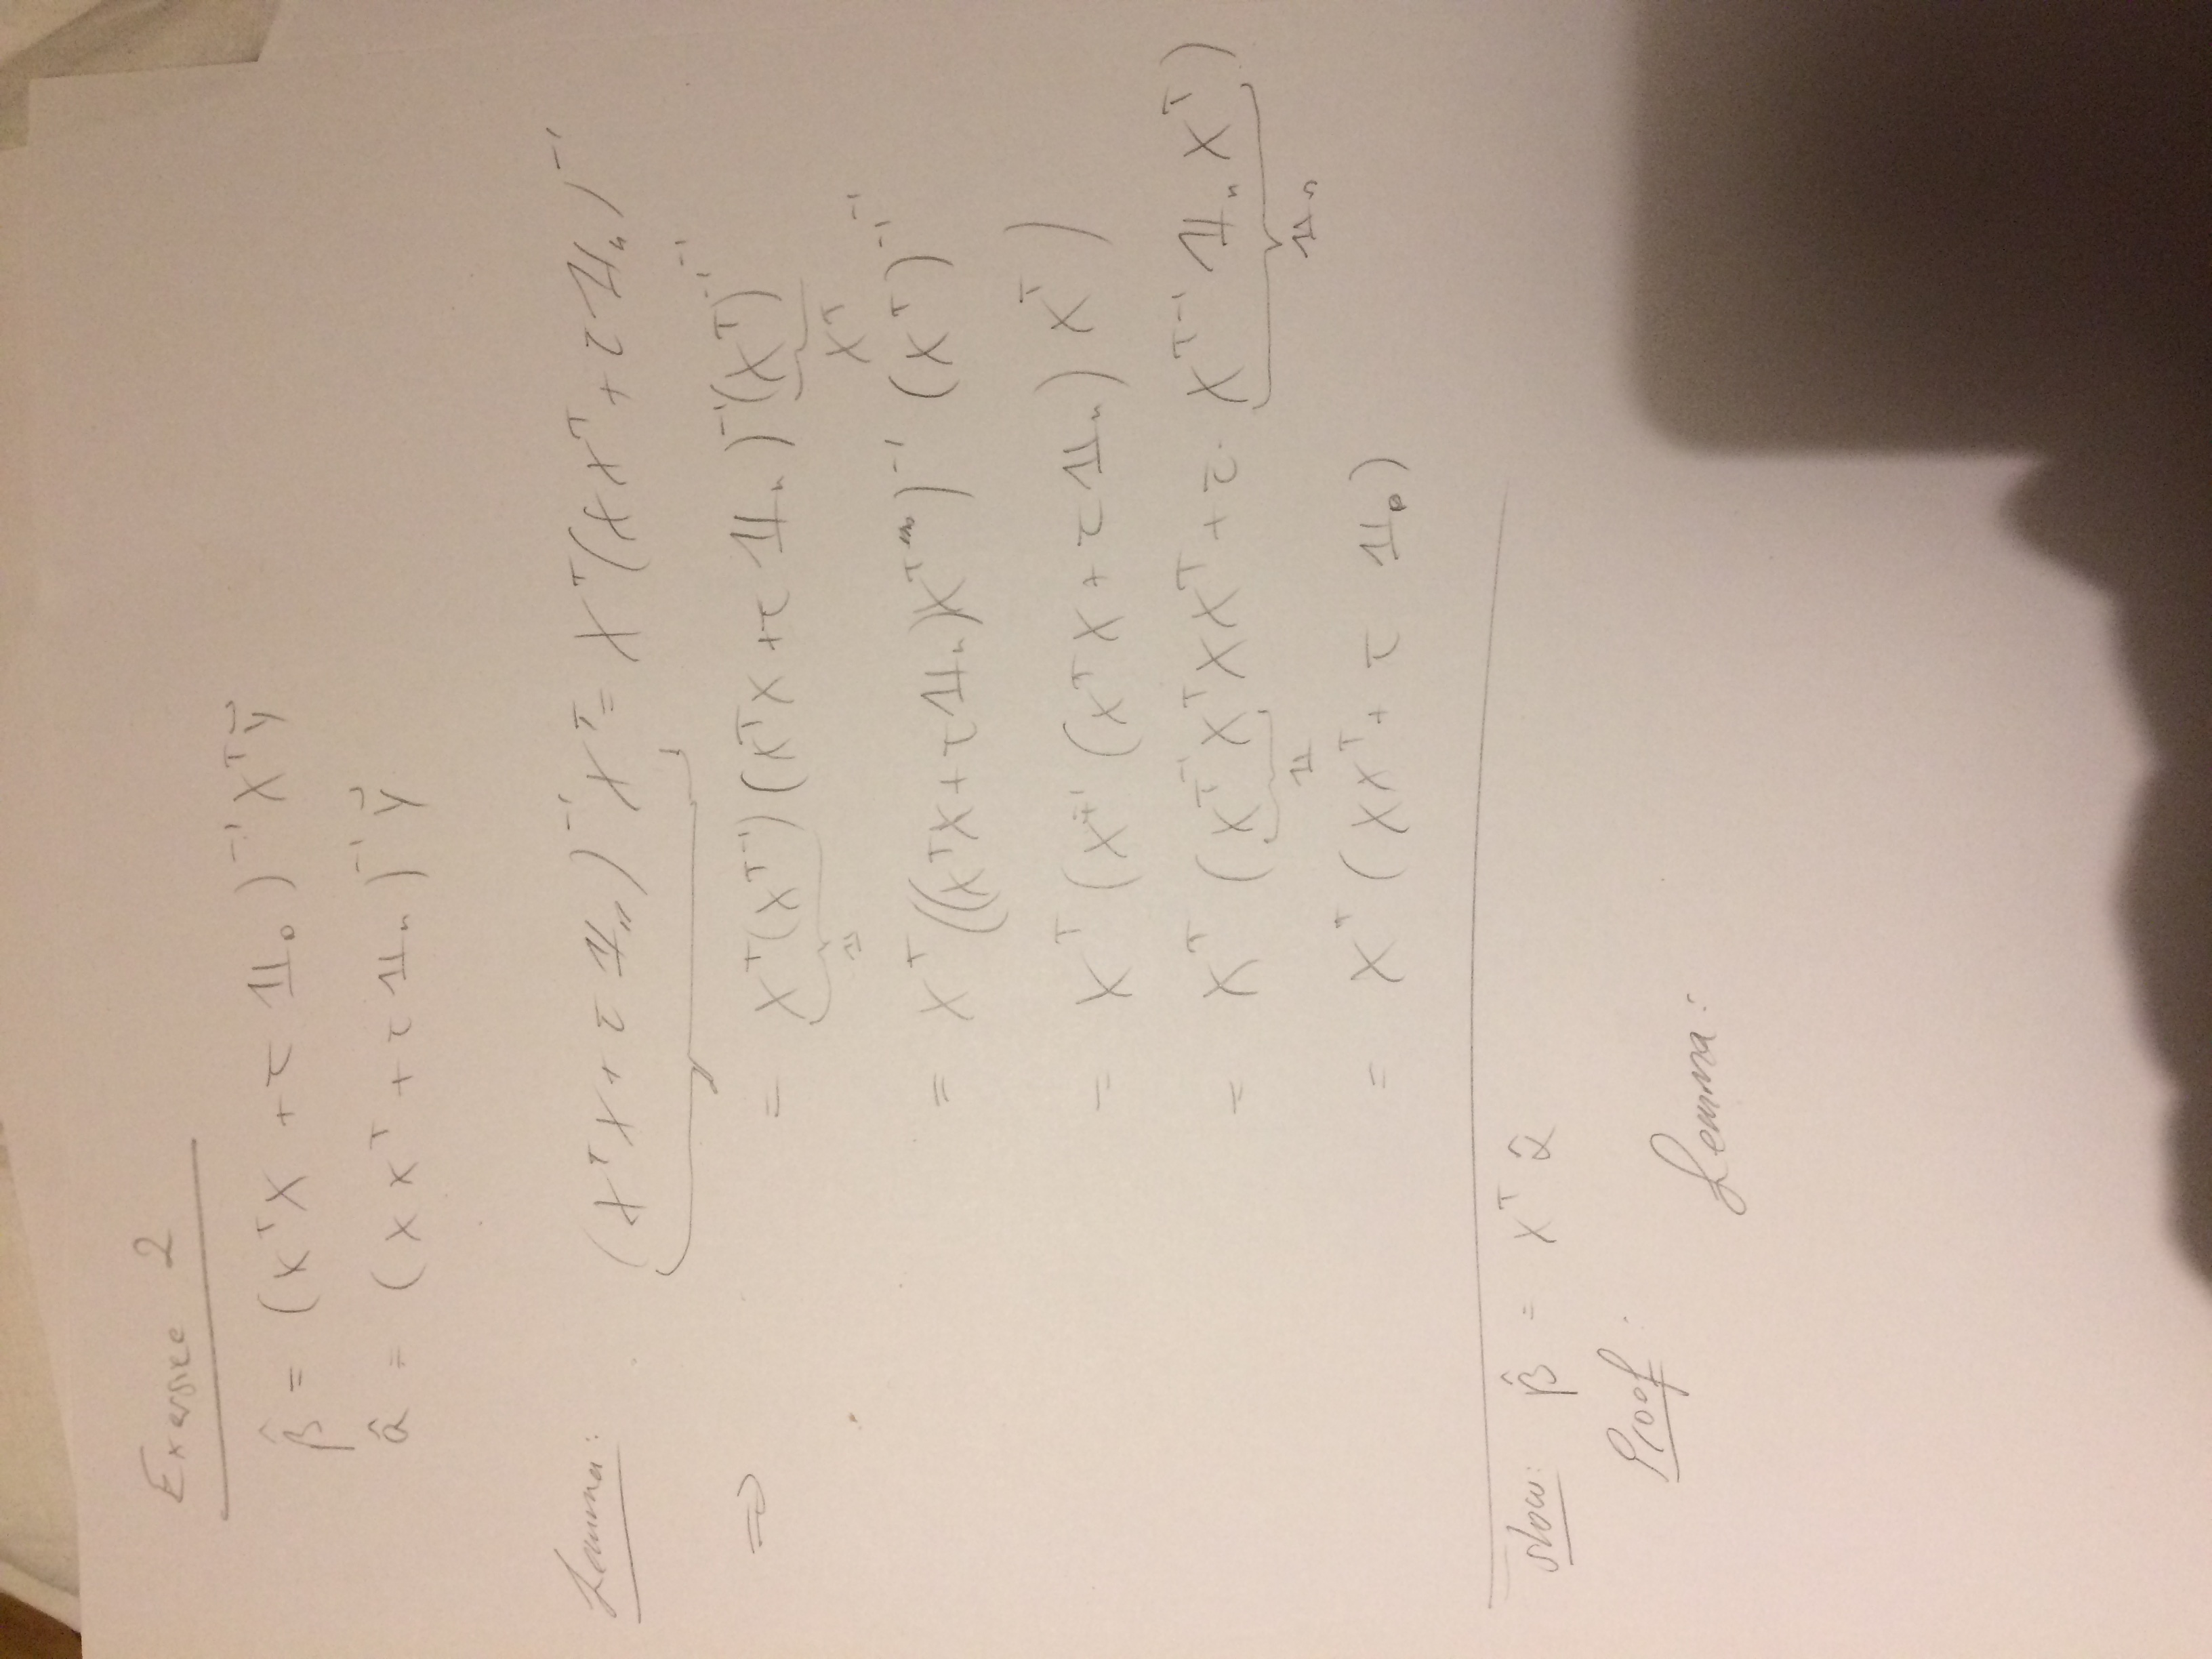 Exersice 2
β̂ = (XᵀX + τ 𝟙ₚ)⁻¹ Xᵀ y⃗
α̂ = (XXᵀ + τ 𝟙ₙ)⁻¹ y⃗
Lemma: (XᵀX + τ 𝟙ₙ)⁻¹ Xᵀ = Xᵀ(XXᵀ + τ 𝟙ₙ)⁻¹
⇒ = Xᵀ(Xᵀ⁻¹)(XᵀX + τ 𝟙ₙ)⁻¹(Xᵀ)⁻¹⁻¹
𝟙 Xᵀ
= Xᵀ((XᵀX + τ 𝟙ₙ)Xᵀ)⁻¹ (Xᵀ)⁻¹⁻¹
= Xᵀ (Xᵀ⁻¹ (XᵀX + τ 𝟙ₙ) Xᵀ)
= Xᵀ (Xᵀ⁻¹XᵀXXᵀ + τ · Xᵀ⁻¹ 𝟙ₙ Xᵀ)
𝟙 𝟙ₙ
= Xᵀ (XXᵀ + τ 𝟙ₚ)
Show: β̂ = Xᵀ α̂
Proof:
Lemma: